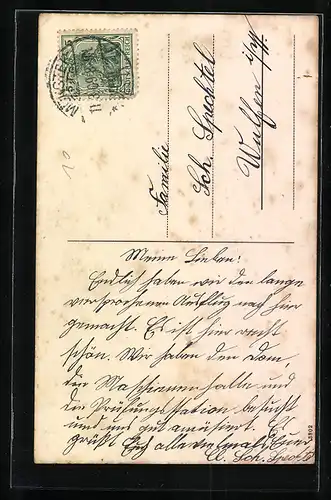 Familie
Sch. Spechtel
Wulfen i/W.
Meine Lieben!
Endlich haben wir den lange
versprochenen Ausflug nach hier
gemacht. Es ist hier recht
schön. Wir haben den Dom,
die Maschienenhalle und
die Prüfungsstation besucht
und uns gut amüsiert. Es
grüßt Euch alle vielmals Euer
Sch.